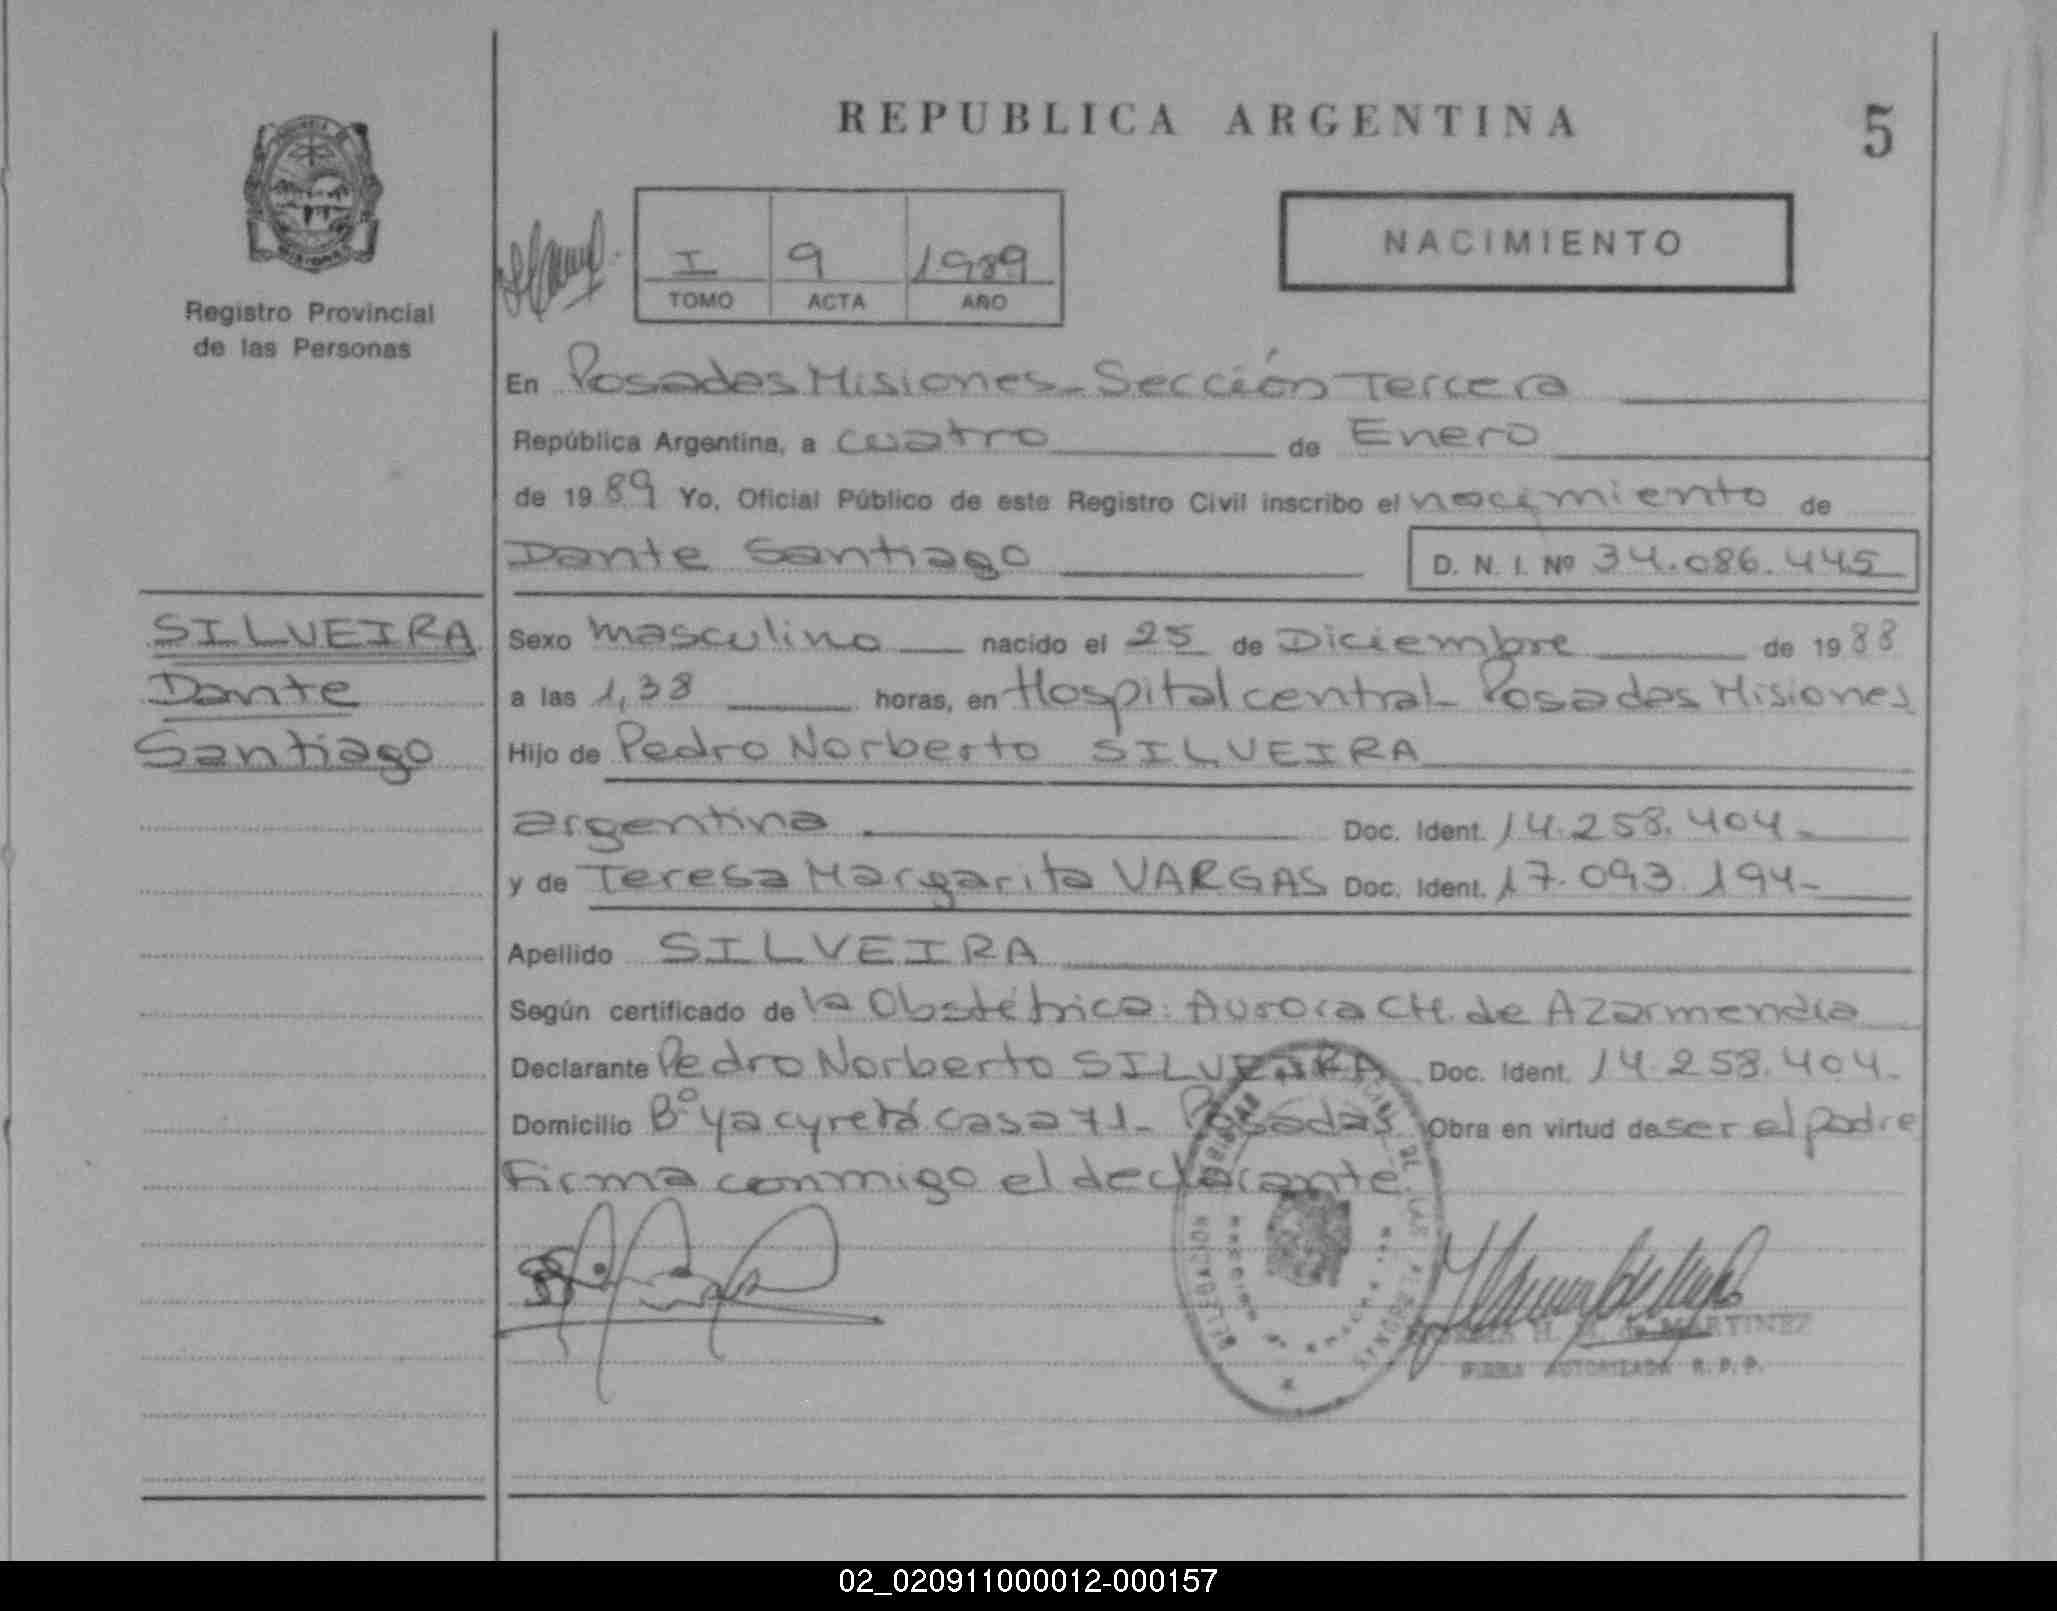 REPUBLICA ARGENTINA
5
Registro Provincial
de las Personas
I 9 1989
TOMO ACTA AÑO
NACIMIENTO
En Posadas Misiones - Sección Tercera
República Argentina, a cuatro de Enero
de 1989 Yo, Oficial Público de este Registro Civil inscribo el nacimiento de
Dante Santiago D. N. I. Nº 34.086.445
SILVEIRA
Dante
Santiago
Sexo masculino nacido el 25 de Diciembre de 1988
a las 1,38 horas, en Hospital central - Posadas Misiones
Hijo de Pedro Norberto SILVEIRA
argentina Doc. Ident. 14.258.404-
y de Teresa Margarita VARGAS Doc. Ident. 17.093.194-
Apellido SILVEIRA
Según certificado de la Obstétrica: Aurora CH. de Azarmendia
Declarante Pedro Norberto SILVEIRA Doc. Ident. 14.258.404-
Domicilio Bº yacyretá casa 71- Posadas Obra en virtud de ser el padre
Firma conmigo el declarante
DELEGACION DE LAS PERSONAS
MARTINEZ
FIRMA AUTORIZADA R. P. P.
02_020911000012-000157